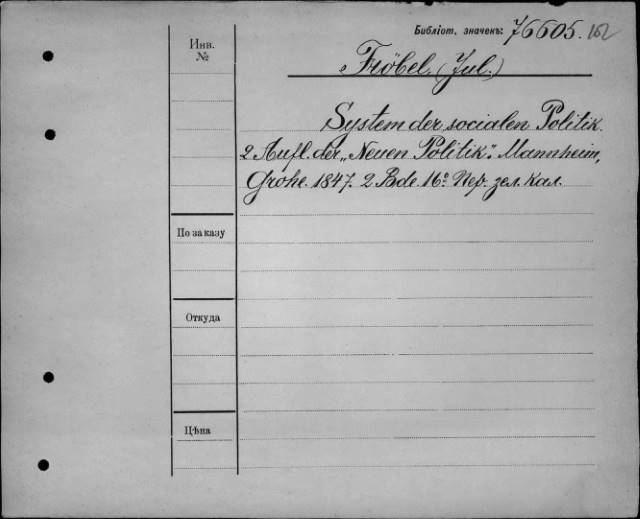 Библіот. значекъ: 76605. 162
Инв.
№
Fröbel. (Jul.)
System der socialen Politik.
2 Aufl. der „Neuen Politik“. Mannheim,
Grohe. 1847. 2 Bde. 16º. Пер. зел. кал.
По заказу
Откуда
Цѣна